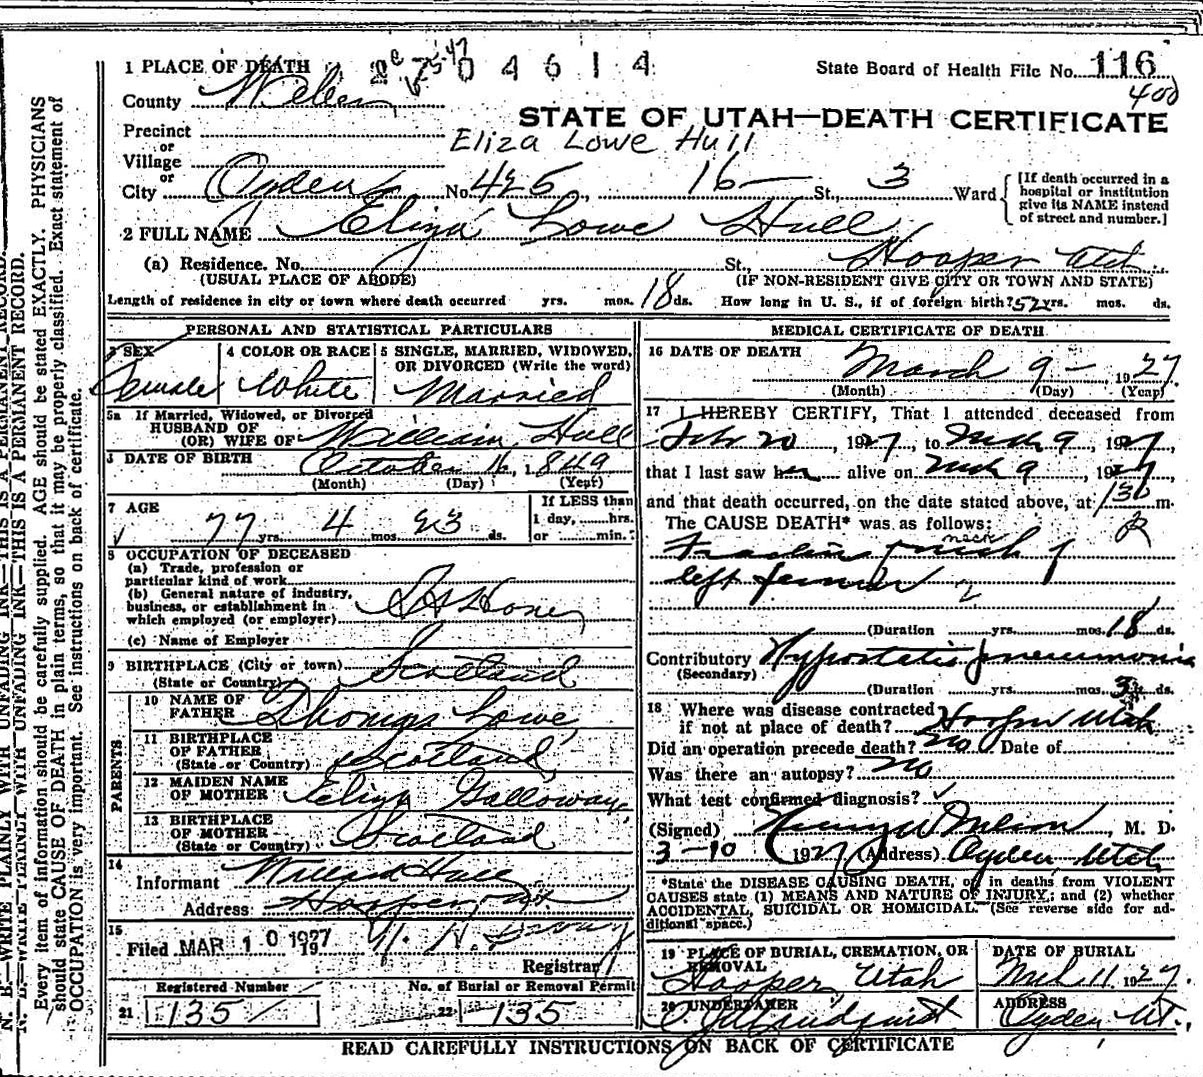 1 PLACE OF DEATH 2 7 0 4 6 1 4 State Board of Health File No. 116
400
County Weber
STATE OF UTAH—DEATH CERTIFICATE
Precinct
or
Eliza Lowe Hull
Village
or
City Ogden No. 425, 16— St., 3 Ward
[If death occurred in a hospital or institution give its NAME instead of street and number.]
2 FULL NAME Eliza Lowe Hull
(a) Residence. No. St., Hooper Utah
(USUAL PLACE OF ABODE) (IF NON-RESIDENT GIVE CITY OR TOWN AND STATE)
Length of residence in city or town where death occurred yrs. mos. 18 ds. How long in U. S., if of foreign birth? 52 yrs. mos. ds.
PERSONAL AND STATISTICAL PARTICULARS
3 SEX
Female
4 COLOR OR RACE
White
5 SINGLE, MARRIED, WIDOWED, OR DIVORCED (Write the word)
Married
5a If Married, Widowed, or Divorced
HUSBAND OF
(OR) WIFE OF William Hull
DATE OF BIRTH October 16, 1849
(Month) (Day) (Year)
7 AGE
77 yrs. 4 mos. 23 ds.
If LESS than
1 day, hrs.
or min.
OCCUPATION OF DECEASED
(a) Trade, profession or
particular kind of work
(b) General nature of industry,
business, or establishment in
which employed (or employer) At Home
(c) Name of Employer
9 BIRTHPLACE (City or town)
(State or Country) Scotland
PARENTS
10 NAME OF
FATHER Thomas Lowe
11 BIRTHPLACE
OF FATHER
(State or Country) Scotland
12 MAIDEN NAME
OF MOTHER Eliza Galloway
13 BIRTHPLACE
OF MOTHER
(State or Country) Scotland
14
Informant Willard Hull
Address Hooper Ut
15
Filed MAR 10 1927 19
Registrar
Registered Number No. of Burial or Removal Permit
21 135 22 135
MEDICAL CERTIFICATE OF DEATH
16 DATE OF DEATH
March 9— 1927
(Month) (Day) (Year)
17 I HEREBY CERTIFY, That I attended deceased from
Feb 20, 1927, to Mch 9, 1927,
that I last saw her alive on Mch 9, 1927
and that death occurred, on the date stated above, at 130 m.
The CAUSE DEATH* was as follows:
neck
left femur
(Duration yrs. mos. 18 ds.
Contributory Hypostatic pneumonia
(Secondary)
(Duration yrs. mos. 3 ds.
18 Where was disease contracted
if not at place of death? Hooper Utah
Did an operation precede death? no Date of
Was there an autopsy? no
What test confirmed diagnosis?
(Signed) , M. D.
3-10 1927 (Address) Ogden, Utah
*State the DISEASE CAUSING DEATH, or in deaths from VIOLENT
CAUSES state (1) MEANS AND NATURE OF INJURY; and (2) whether
ACCIDENTAL, SUICIDAL OR HOMICIDAL. (See reverse side for ad-
ditional space.)
19 PLACE OF BURIAL, CREMATION, OR
REMOVAL
Hooper, Utah
DATE OF BURIAL
Mch 11 1927
20 UNDERTAKER
ADDRESS
Ogden Ut.
READ CAREFULLY INSTRUCTIONS ON BACK OF CERTIFICATE
N. B.—WRITE PLAINLY WITH UNFADING INK—THIS IS A PERMANENT RECORD.
Every item of information should be carefully supplied. AGE should be stated EXACTLY. PHYSICIANS
should state CAUSE OF DEATH in plain terms, so that it may be properly classified. Exact statement of
OCCUPATION is very important. See instructions on back of certificate.